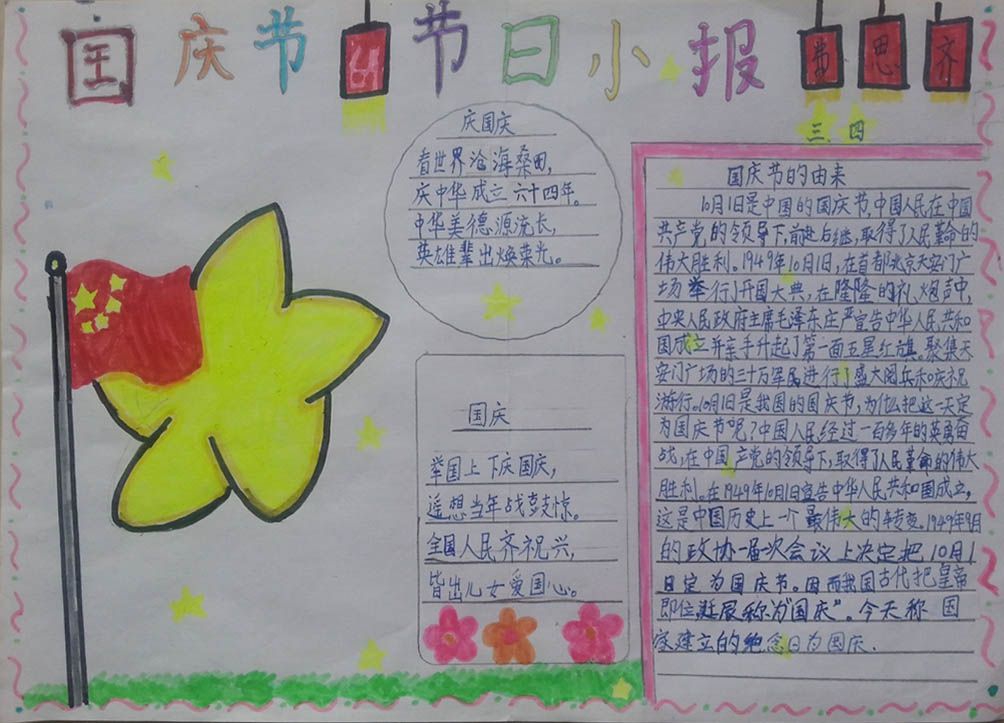 国庆节 节日小报
思齐
三、四
庆国庆
看世界沧海桑田,
庆中华成立六十四年。
中华美德源流长,
英雄辈出焕荣光。
国庆
举国上下庆国庆,
遥想当年战支惊。
全国人民齐祝兴,
皆出儿女爱国心。
国庆节的由来
10月1日是中国的国庆节,中国人民在中国
共产党的领导下,前赴后继,取得了人民革命的
伟大胜利。1949年10月1日,在首都北京天安门广
场举行了开国大典,在隆隆的礼炮声中,
中央人民政府主席毛泽东庄严宣告中华人民共和
国成立并亲手升起了第一面五星红旗。聚集天
安门广场的三十万军民进行了盛大阅兵和庆祝
游行。10月1日是我国的国庆节,为什么把这一天定
为国庆节呢?中国人民经过一百多年的英勇奋
战,在中国产党的领导下,取得了人民革命的伟大
胜利。在1949年10月1日宣告中华人民共和国成立,
这是中国历史上一个最伟大的转变。1949年9月
的政协一届一次会议上决定把10月1
日定为国庆节。因而我国古代把皇帝
即位、诞辰称为"国庆"。今天称国
家建立的纪念日为国庆.